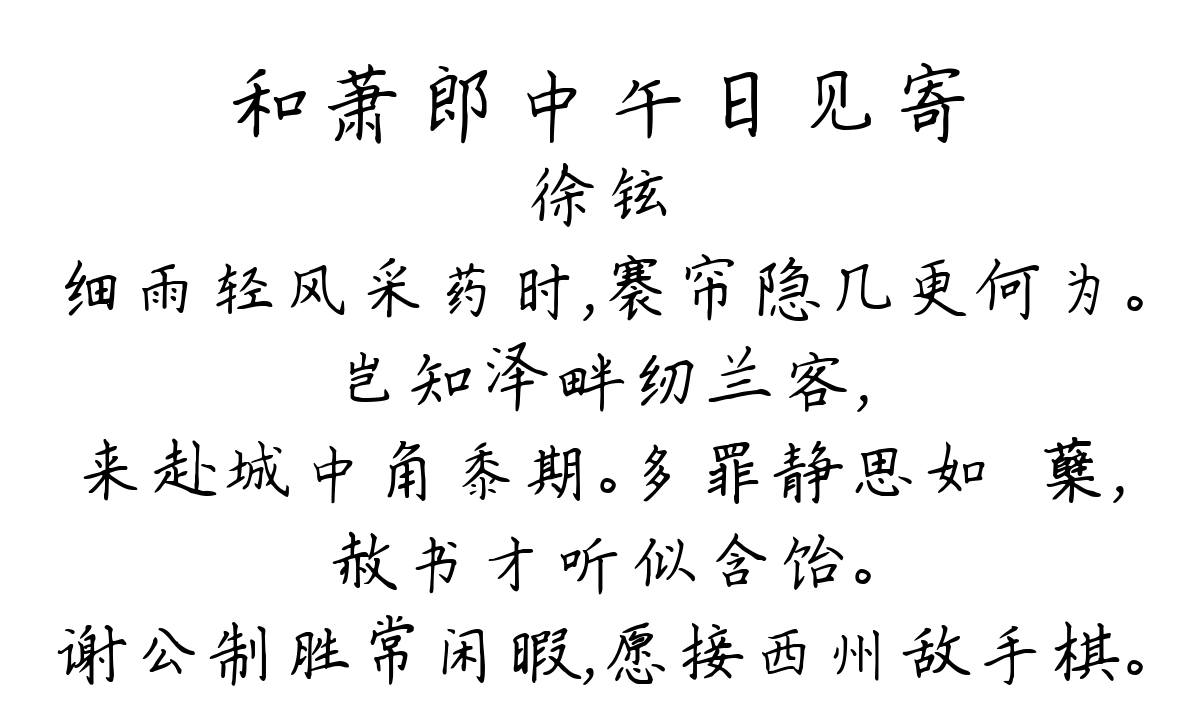 和萧郎中午日见寄
徐铉
细雨轻风采药时,褰帘隐几更何为。
岂知泽畔纫兰客,
来赴城中角黍期。多罪静思如 蘖,
赦书才听似含饴。
谢公制胜常闲暇,愿接西州敌手棋。